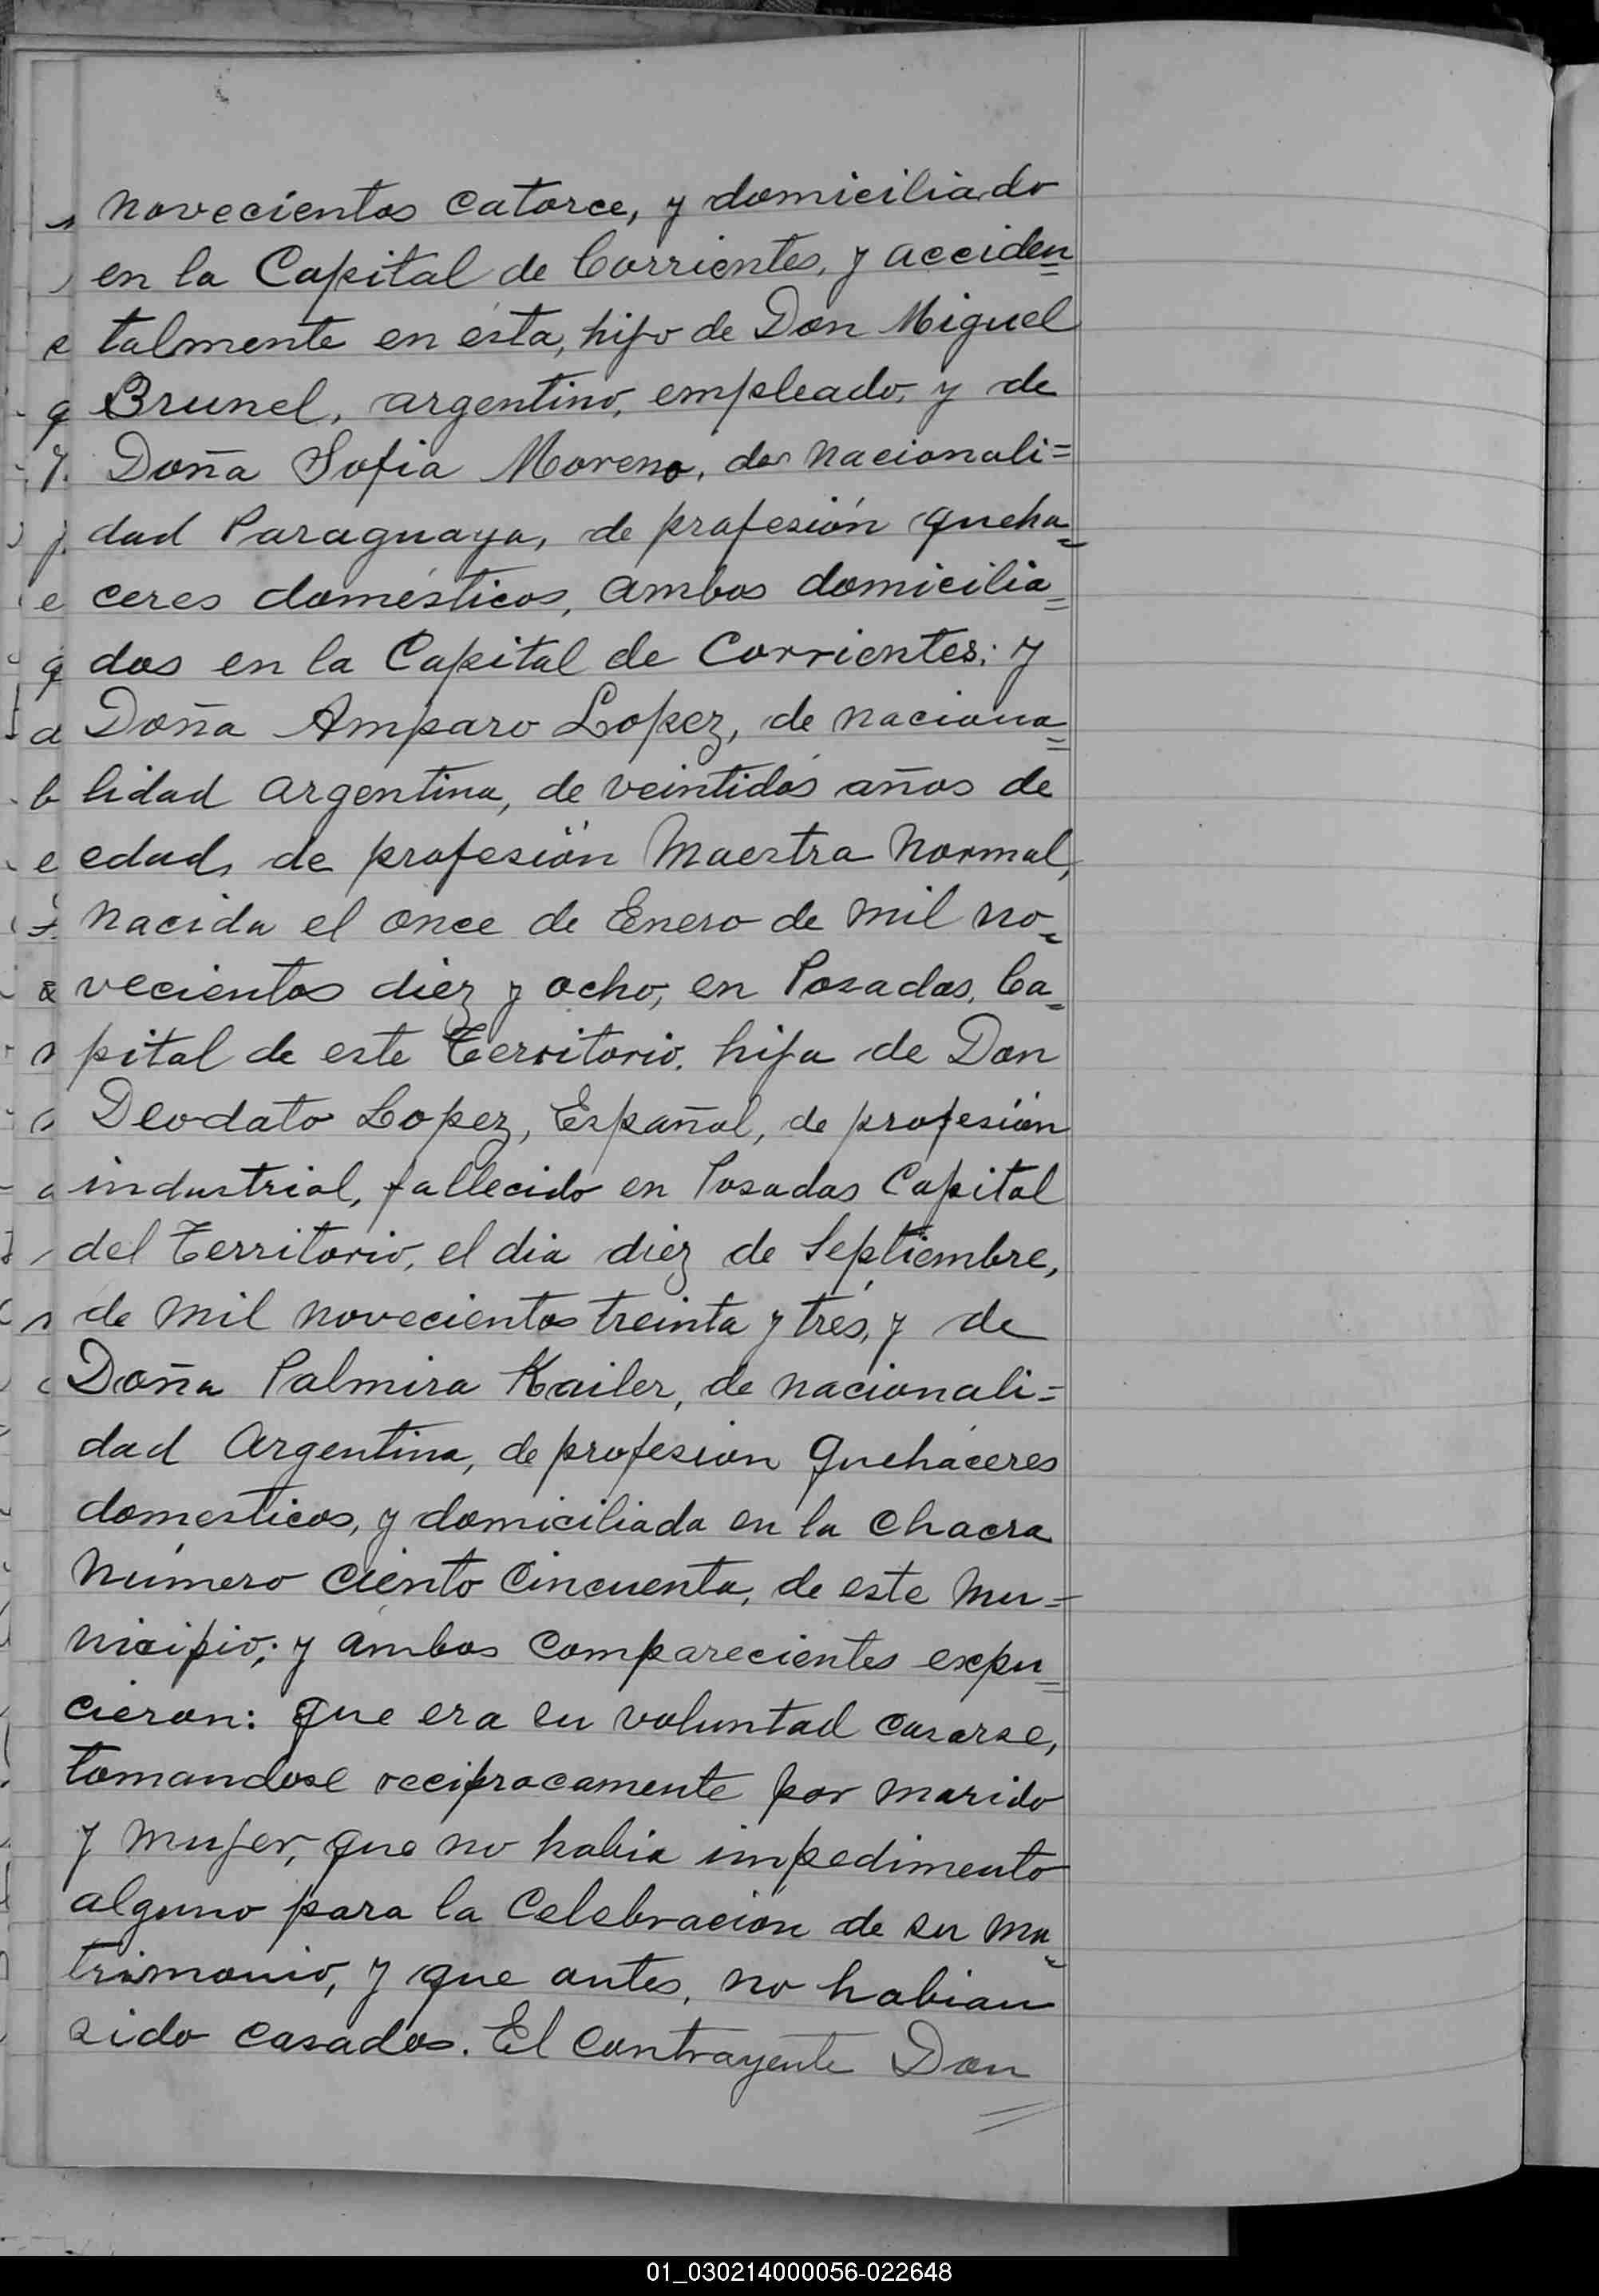 novecientos catorce, y domiciliado
en la Capital de Corrientes, y acciden=
talmente en ésta, hijo de Don Miguel
Brunel, argentino, empleado, y de
Doña Sofia Moreno, de nacionali=
dad Paraguaya, de profesión queha=
ceres domésticos, ambos domicilia=
dos en la Capital de Corrientes; y
Doña Amparo Lopez, de naciona=
lidad argentina, de veintidós años de
edad, de profesión Maestra Normal,
nacida el once de Enero de mil no=
vecientos diez y ocho, en Posadas, Ca=
pital de este Territorio, hija de Don
Deodato Lopez, Español, de profesión
industrial, fallecido en Posadas Capital
del Territorio, el dia diez de Septiembre,
de mil novecientos treinta y trés, y de
Doña Palmira Kailer, de nacionali=
dad Argentina, de profesion quehaceres
domesticos, y domiciliada en la chacra
número ciento cincuenta, de este Mu=
nicipio; y ambos comparecientes expu=
cieron: que era su voluntad casarse,
tomandose reciprocamente por marido
y mujer, que no habia impedimento
alguno para la celebración de su ma=
trimonio, y que antes, no habian
sido casados. El contrayente Don
01_030214000056-022648